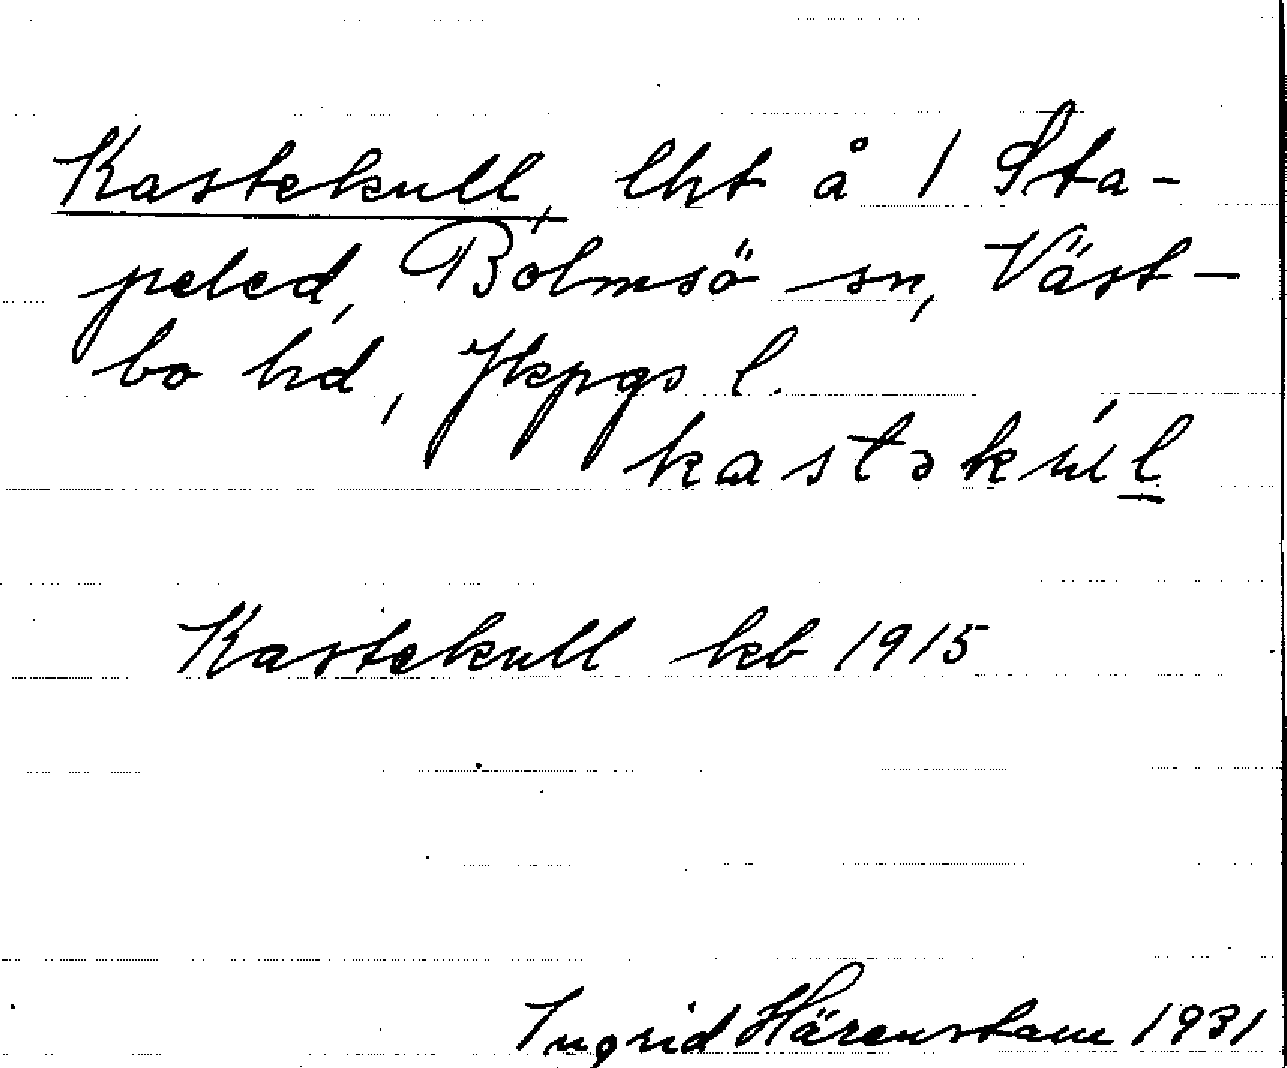 Kastekull, lht å 1 Sta-
peled, Bolmsö sn, Väst-
bo hd, Jkpgs l.
kastəkúl
Kastekull kb 1915
Ingrid Härenstam 1931